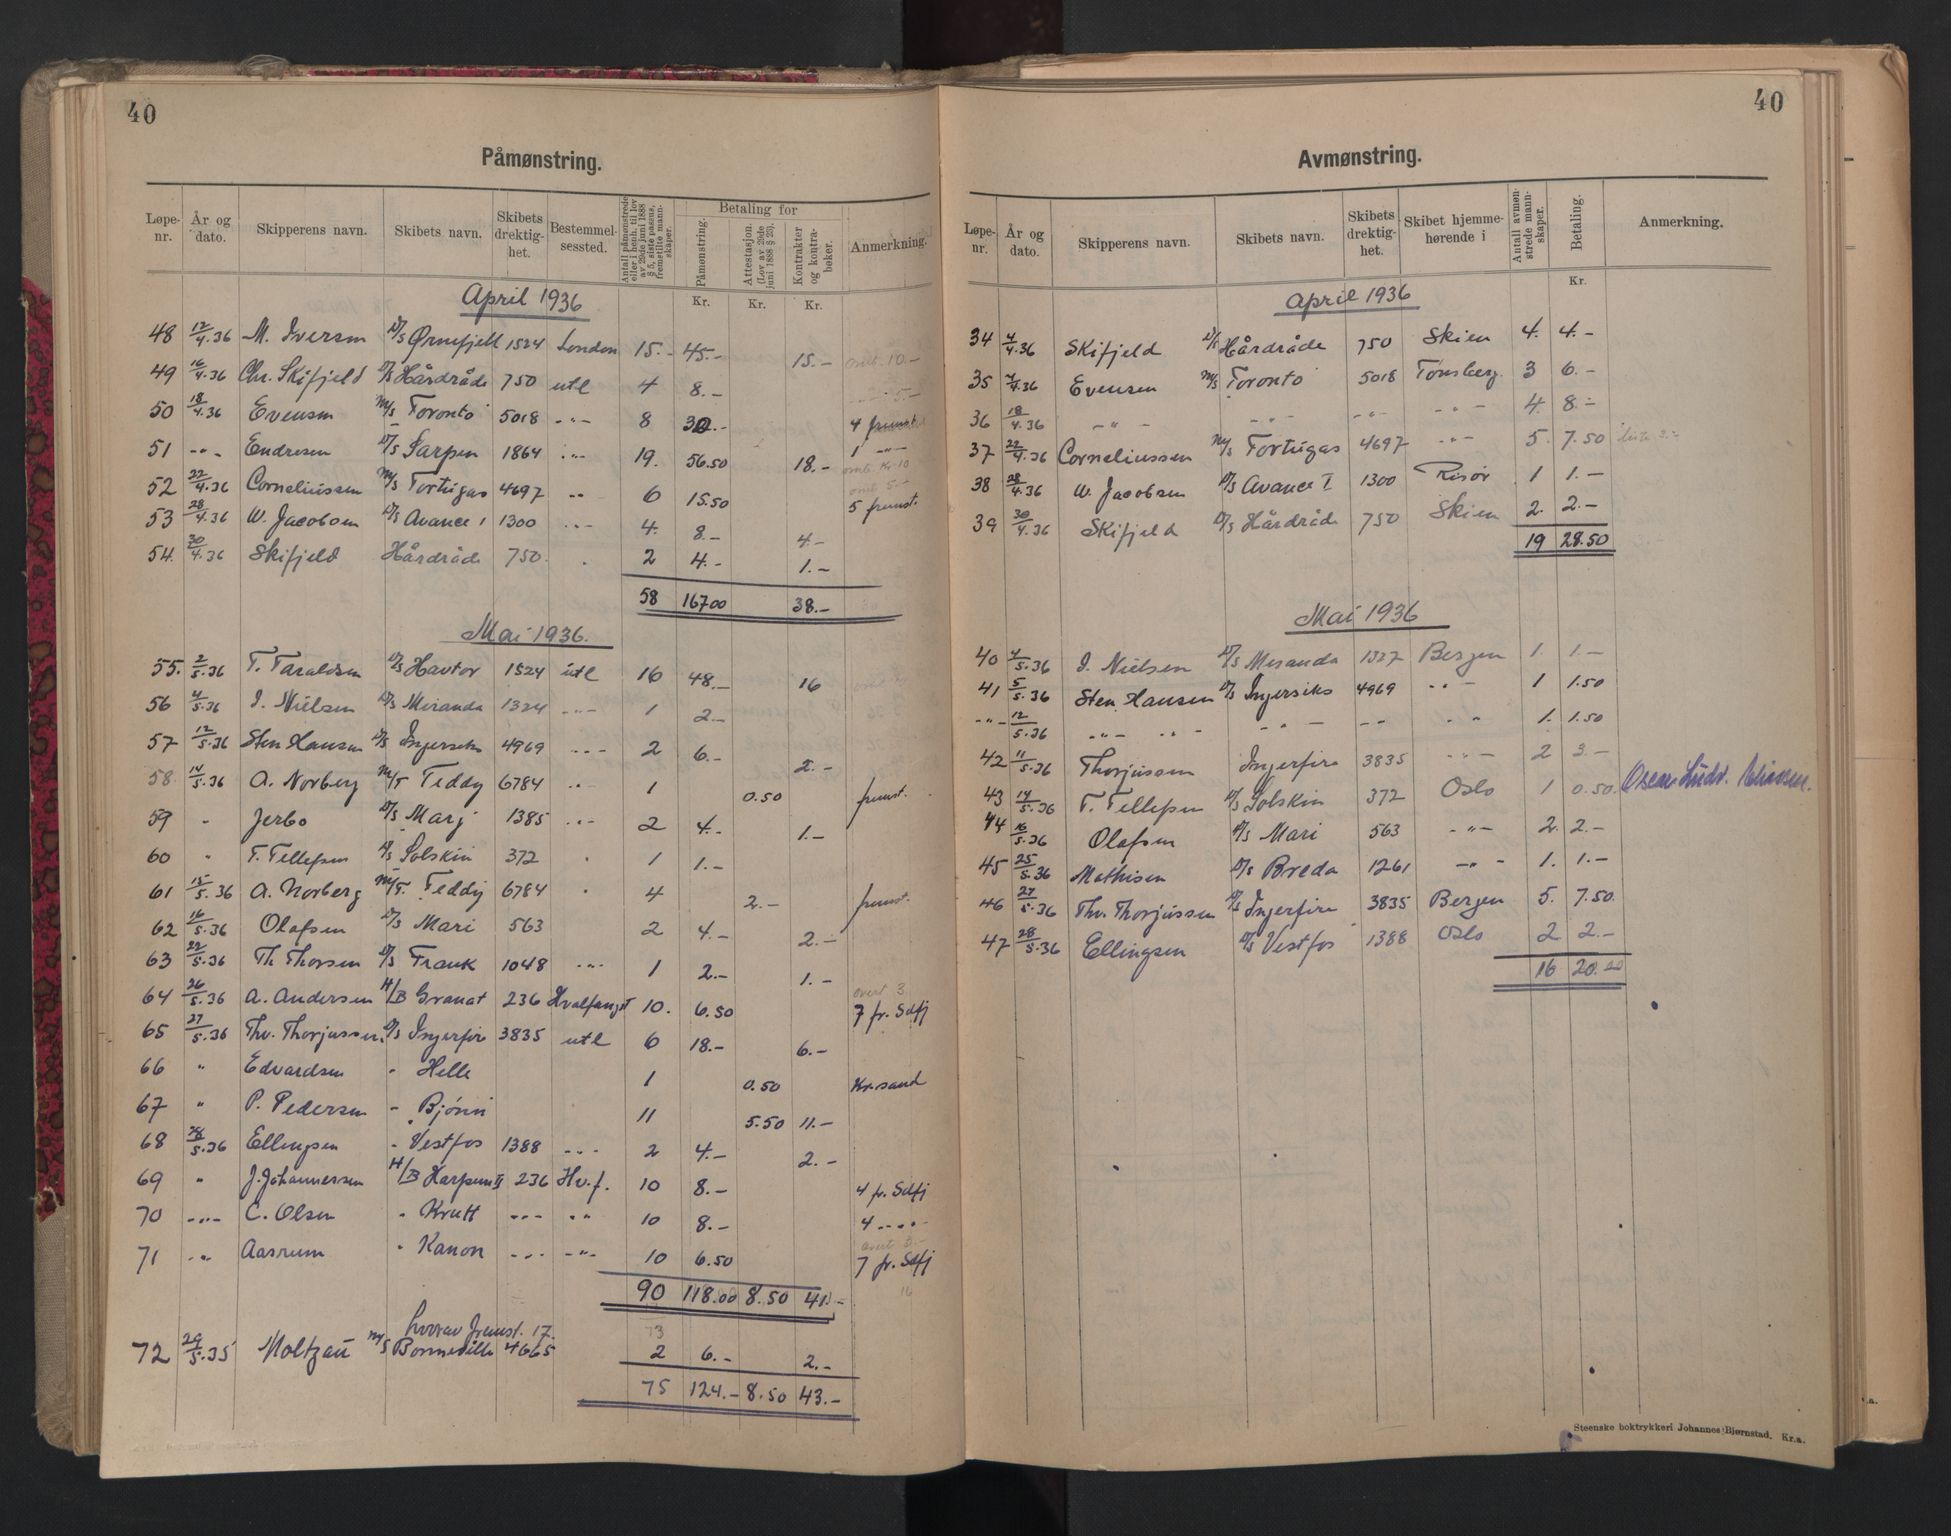 40
Påmønstring.
Løpe-nr. År og dato. Skipperens navn. Skibets navn. Skibets drektig-het. Bestemmel-sessted. Antall påmønstrede eller i henh. til lov av 29de juni 1888 § 5, siste passus, fremstilte mann-skaper. Betaling for Påmønstring. Attestasjon. (Lov av 29de juni 1888 § 23). Kontrakter og kontra-bøker. Anmerkning.
Kr. Kr. Kr.
April 1936
48 12/4.36 M. Iversen D/S Ørnefjell 1524 London 15.- 45.- 15.- omb. 10.-
49 16/4.36 Chr. Skifjeld D/S Hårdråde 750 utl 4 8.- 5.-
50 18/4.36 Evensen M/S Toronto 5018 -"- 8 30.- 4 fremst.
51 -"- Endresen D/S Sarpen 1864 -"- 19. 56.50 18.- 1 -"-
omb. Kr 10
52 22/4.36 Corneliussen M/S Tortugas 4697 " 6 15.50 5 fremst.
omb. 5.-
53 28/4.36 W. Jacobsen D/S Avance 1 1300 -"- 4. 8.- 4.-
54. 30/4.36 Skifjeld Hårdråde 750. 2 4.- 1.-
58 167.00 38.-
Mai 1936.
55. 2/5.36 T. Taraldsen D/S Havtor 1524 utl 16 48.- 16
56 4/5.36 I. Nielsen D/S Miranda 1324 -"- 1 2.-
57 12/5.36 Sten Hansen D/S Ingerseks 4969 -"- 2 6.- 2.-
58 14/5.36 A. Norberg M/T Teddy 6784 " 1 0.50 fremst.
59 " Jerbo D/S Marj 1385 -"- 2 4.- 1.-
60 " T. Tellefsen D/S Solskin 372 " 1 1.-
61 15/5.36 A. Norberg M/T. Teddy 6784 " 4 2.- fremst.
62 16/5.36 Olafsen D/S Mari 563 2 4.- 2.-
63 22/5.36 Th Thorsen D/S Frank 1048 -"- 1 2.- 1.-
64 26/5.36 A. Andersen H/B Granat 236 Hvalfangst 10. 6.50 7 fr. Sdfj
overt 3.
65 27/5.36 Thv. Thorjussen D/S Ingerfire 3835 utl 6 18.- 6.-
66 " Edvardsen " Helle 1 0.50 Kr.sand
67 " P. Pedersen - Bjönn 11 5.50 11.-
68 28/5.36 Ellingsen - Vestfos 1388 -"- 2 4.- 2.-
69 " J. Johannessen H/B Harpun II 236 Hv.f. 10 8.- 4 fr. Sdfj
70 -"- C. Olsen " Krutt -"- " 10 8.- 4 -"-
71 -"- Aasrum " Kanon -"- -"- 10 6.50 7 fr. Sdfj
overt 3.-
90 118.00 8.50 41.-
16
hvorav fremst. 17.
73
72 29/5.35 Moltzau M/S Bonneville 4665 2 6.- 2.-
75 124.- 8.50 43.-
40
Avmønstring.
Løpe-nr. År og dato. Skipperens navn. Skibets navn. Skibets drektig-het. Skibet hjemme-hørende i Antall avmøn-strede mann-skaper. Betaling. Anmerkning.
Kr.
April 1936
34 4/4.36 Skifjeld D/S Hårdråde 750 Skien 4. 4.-
35 4/4.36 Evensen M/S Toronto 5018 Tønsberg. 3 6.-
36 18/4.36 -"- -"- -"- -"- 4. 8.-
37 22/4.36 Corneliussen M/S Tortugas 4697 -"- 5. 7.50
38 28/4.36 W. Jacobsen D/S Avance I 1300 Risør 1 1.-
39 30/4.36 Skifjeld D/S Hårdråde 750 Skien 2. 2.-
19 28.50
Mai 1936
40 4/5.36 I. Nielsen D/S Miranda 1327 Bergen 1. 1.-
41 5/5.36 Sten Hansen D/S Ingerseks 4969 -"- 1 1.50
-"- 12/5.36 -"- -"- -"- -"- " 1. 1.50
42 11/5.36 Thorjussen Ingerfire 3835 -"- 2 3.-
43 14/5.36 T. Tellefsen D/S Solskin 372 Oslo 1 0.50.
44 16/5.36 Olafsen D/S Mari 563 -"- 2. 2.-
45 25/5.36 Mathisen D/S Breda 1261 -"- 1. 1.-
46 27/5.36 Thv. Thorjussen D/S Ingerfire 3835 Bergen 5. 7.50.
47 28/5.36 Ellingsen D/S Vestfos 1388 Oslo 2 2.-
16 20.00
Steenske boktrykkeri Johannes Bjørnstad. Kr.a.